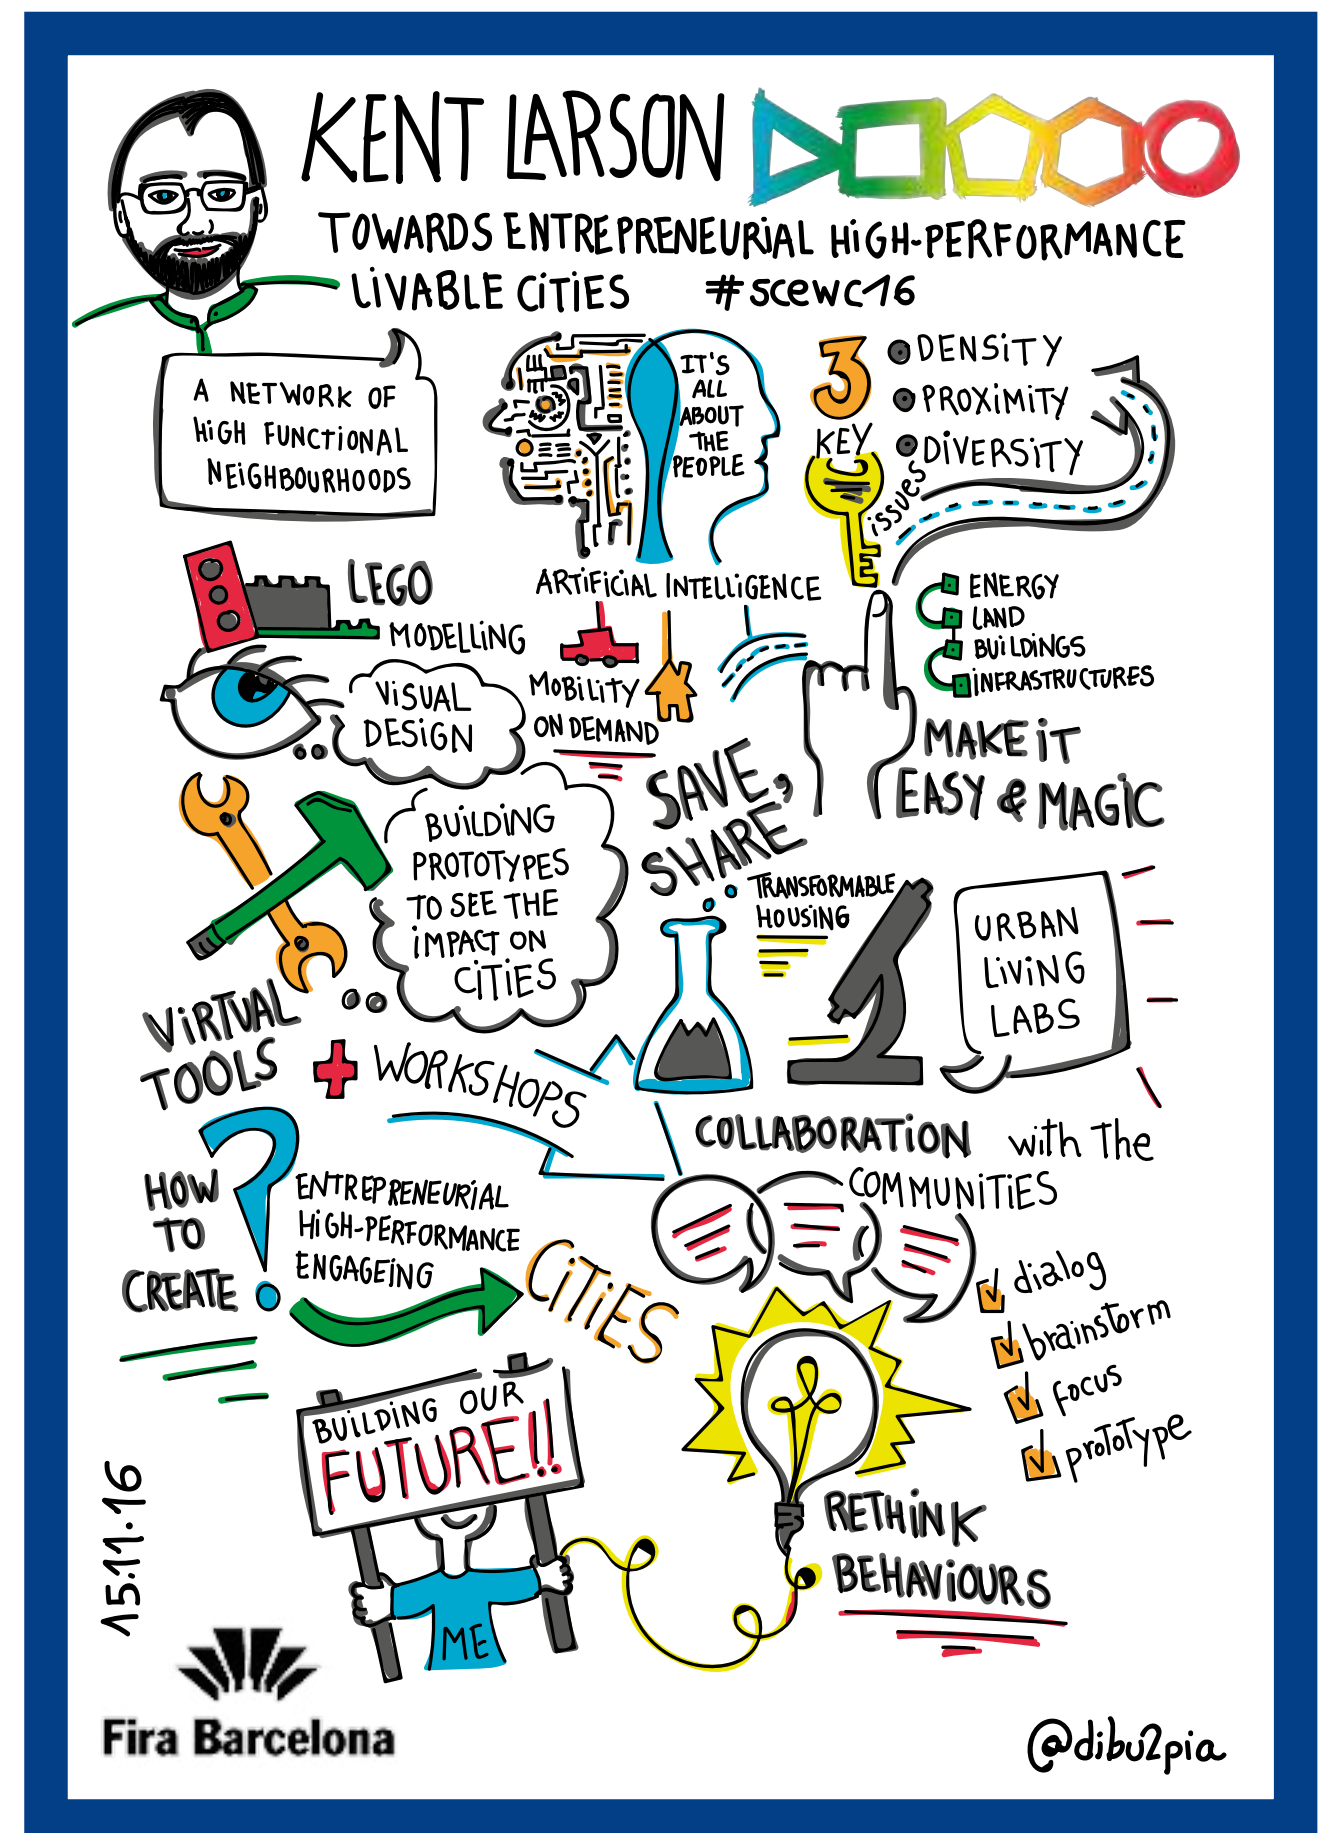 KENT LARSON
TOWARDS ENTREPRENEURIAL HiGH-PERFORMANCE
LiVABLE CiTiES #scewc16
A NETWORK OF
HiGH FUNCTIONAL
NEiGHBOURHOODS
IT'S
ALL
ABOUT
THE
PEOPLE
3
KEY
issues
DENSiTY
PROXiMiTY
DiVERSiTY
LEGO
MODELLiNG
ARTiFiCiAL INTELLiGENCE
ENERGY
LAND
BUiLDiNGS
iNFRASTRUCTURES
ViSUAL
DESiGN
MOBiLiTY
ON DEMAND
MAKE iT
EASY & MAGiC
SAVE,
SHARE
BUiLDiNG
PROTOTYPES
TO SEE THE
iMPACT ON
CiTiES
TRANSFORMABLE
HOUSiNG
URBAN
LiViNG
LABS
ViRTUAL
TOOLS
+ WORKSHOPS
COLLABORATiON with The
COMMUNiTiES
HOW
TO
CREATE ?
ENTREPRENEURiAL
HiGH-PERFORMANCE
ENGAGEiNG
CiTiES
dialog
brainstorm
focus
protoType
BUiLDiNG OUR
FUTURE!!
ME
RETHiNK
BEHAViOURS
15.11.16
Fira Barcelona
@dibu2pia